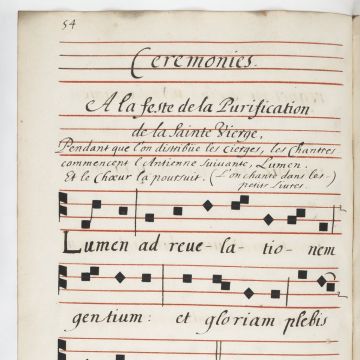 54
Ceremonies.
A la feste de la Purification
de la Sainte Vierge,
Pendant que l'on distribüe les Cierges, les Chantres
commencent l'Antienne Suivante, Lumen.
Et le Chœur la poursuit. (L'on chante dans les
petits livres.)
Lumen ad reve-la-tio-nem
gentium: et gloriam plebis